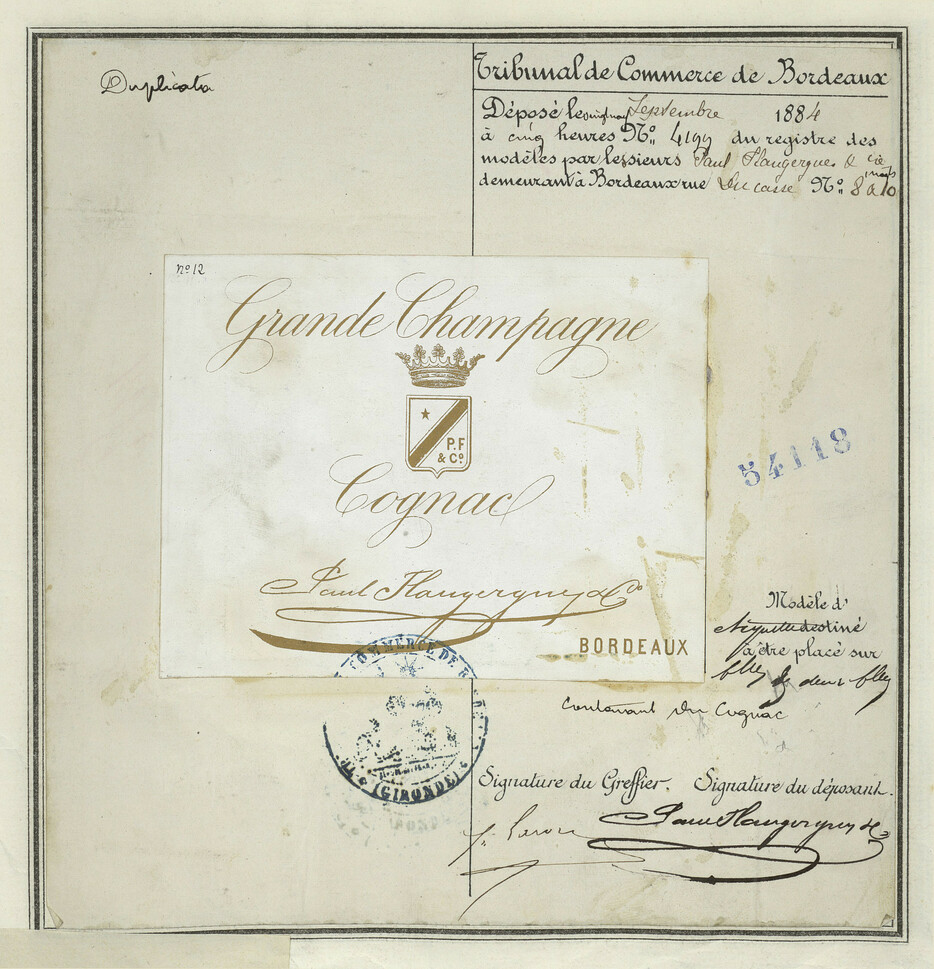 Duplicata
Tribunal de Commerce de Bordeaux
Déposé le Septembre 1884
à cinq heures No. 4199 du registre des
modèles par les sieurs Paul Flaugergues & Cie
demeurant à Bordeaux rue Ducasse No. 8 à 10
No 12
Grande Champagne
P.F
& Co.
Cognac
Paul Flaugergues & Co
BORDEAUX
54118
Modèle d'
étiquette destiné
à être placé sur
COMMERCE DE
(GIRONDE)
contenant du Cognac
Signature du Greffier. Signature du déposant.
Paul Flaugergues & Co